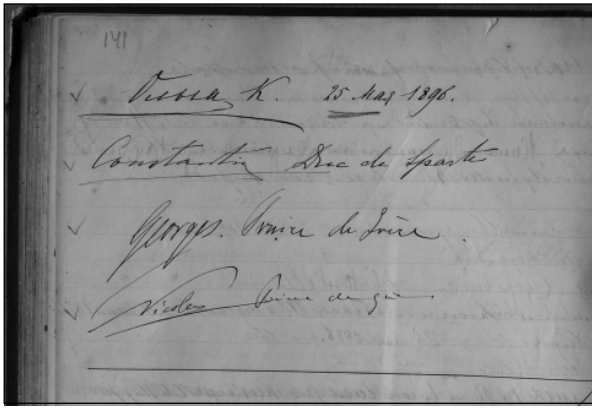 141
K. 25 Mar 1896.
Constantin Duc de Sparte
Georges. Prince de Grèce
Nicolas Prince de Grèce